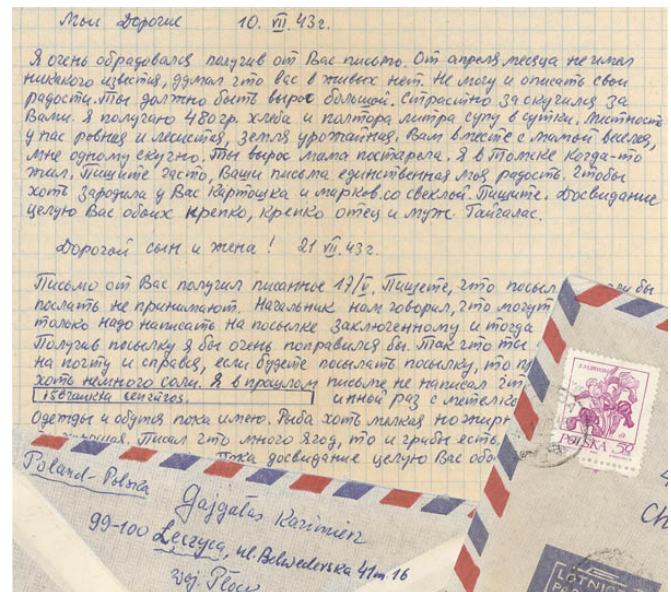 Мои Дорогие 10. VII. 43г.
Я очень обрадовался получив от Вас письмо. От апреля месяца не имел
никакого известия, думал что Вас в живых нет. Не могу и описать свои
радости. Ты должно быть вырос большой. Страстно заскучился за
Вами. Я получаю 480гр. хлеба и полтора литра супу в сутки. Мистность
у нас ровная и лесиста, земля урожайная. Вам вместе с мамой весело,
мне одному скучно. Ты вырос мама постарела. Я в Томске когда-то
жил. Пишите часто, Ваши письма единственная моя радость. Чтобы
хоть зародила у Вас картошка и марков. со свеклой. Пишите. Досвидание
целую Вас обоих крепко, крепко отец и муж. Гайгалас.
Дорогой сын и жена! 21 VII. 43г.
Письмо от Вас получил писанное 17/V. Пишете, что посыл бы
послать не принимают. Начальник нам говорил, что могут
только надо написать на посылке заключенному и тогда
Получив посылку я бы очень поправился бы. Так что ты
на почту и справся, если будете посылать посылку, то
хоть немного соли. Я в прошлом письме не написал
инной раз с
Одежды и обутся пока имею. Рыба хоть мелкая но жирн
Писал что много ягод, то и грибы есть.
Пока досвидание целую Вас обо
POLSKA
Poland-Polska
Gajgalas Kazimierz
99-100 Łęczyca, ul. Belwederska 41 m. 16
woj. Płock
Ch
LOTNIC
PA